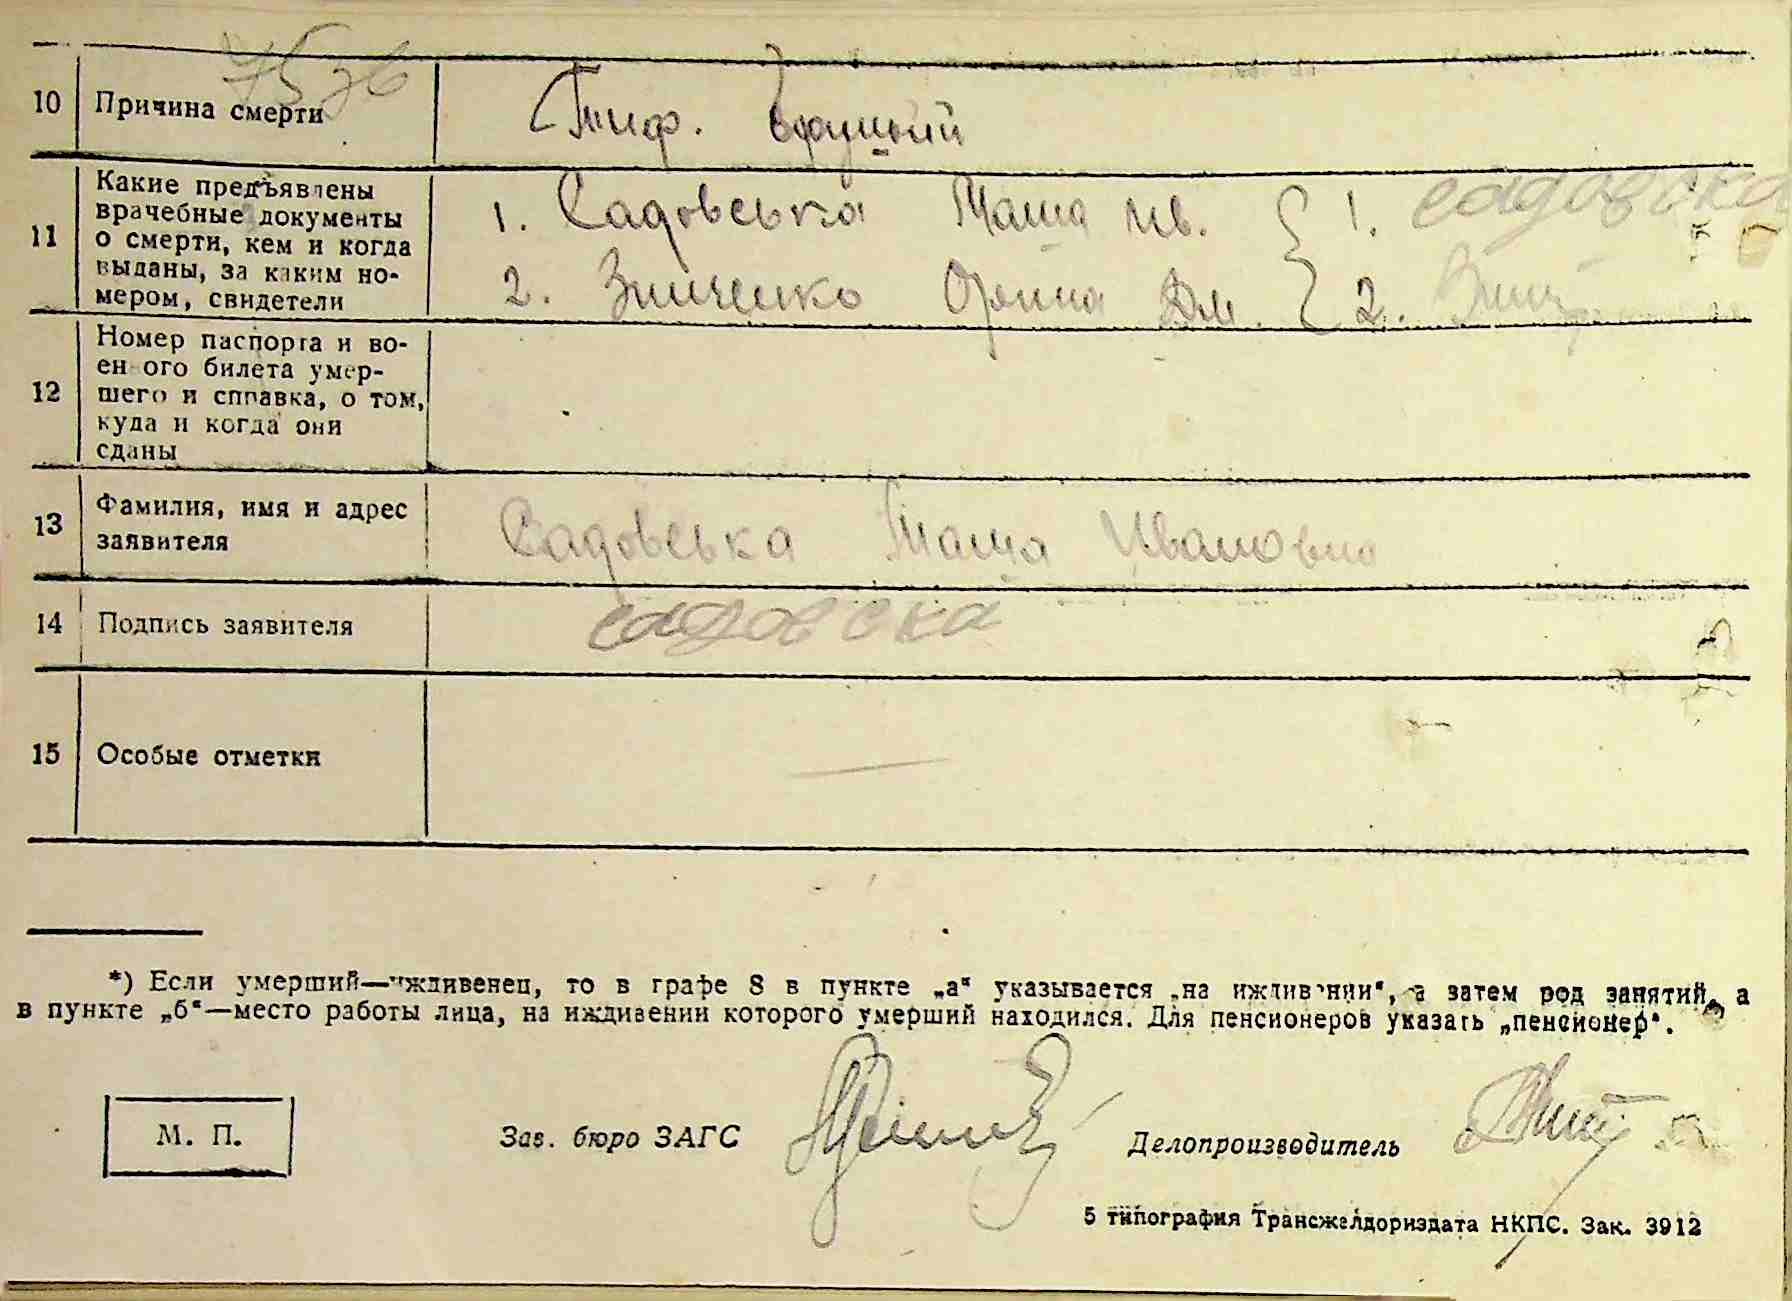 10 Причина смерти Тиф.
11 Какие предъявлены
врачебные документы
о смерти, кем и когда
выданы, за каким но-
мером, свидетели
1. Садовська Маша Ив. 1. садовска
2. Зинченко Орина Дм. 2. Зинч
12 Номер паспорта и во-
енного билета умер-
шего и справка, о том,
куда и когда они
сданы
13 Фамилия, имя и адрес
заявителя
Садовська Маша Ивановна
14 Подпись заявителя садовска
15 Особые отметки —
*) Если умерший—иждивенец, то в графе 8 в пункте „а“ указывается „на иждивении“, а затем род занятий, а
в пункте „б“—место работы лица, на иждивении которого умерший находился. Для пенсионеров указать „пенсионер“.
М. П. Зав. бюро ЗАГС Делопроизводитель
5 типография Трансжелдориздата НКПС. Зак. 3912